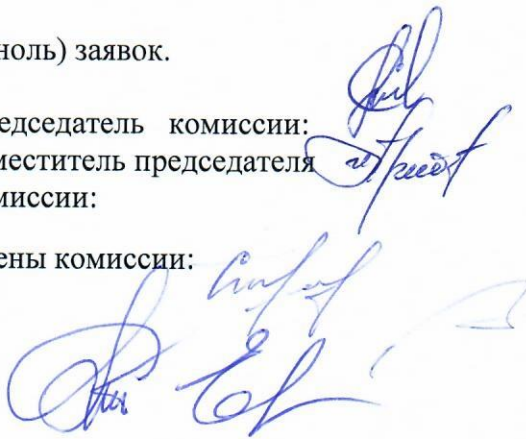 ноль) заявок.
едседатель комиссии:
меститель председателя
миссии:
ены комиссии: